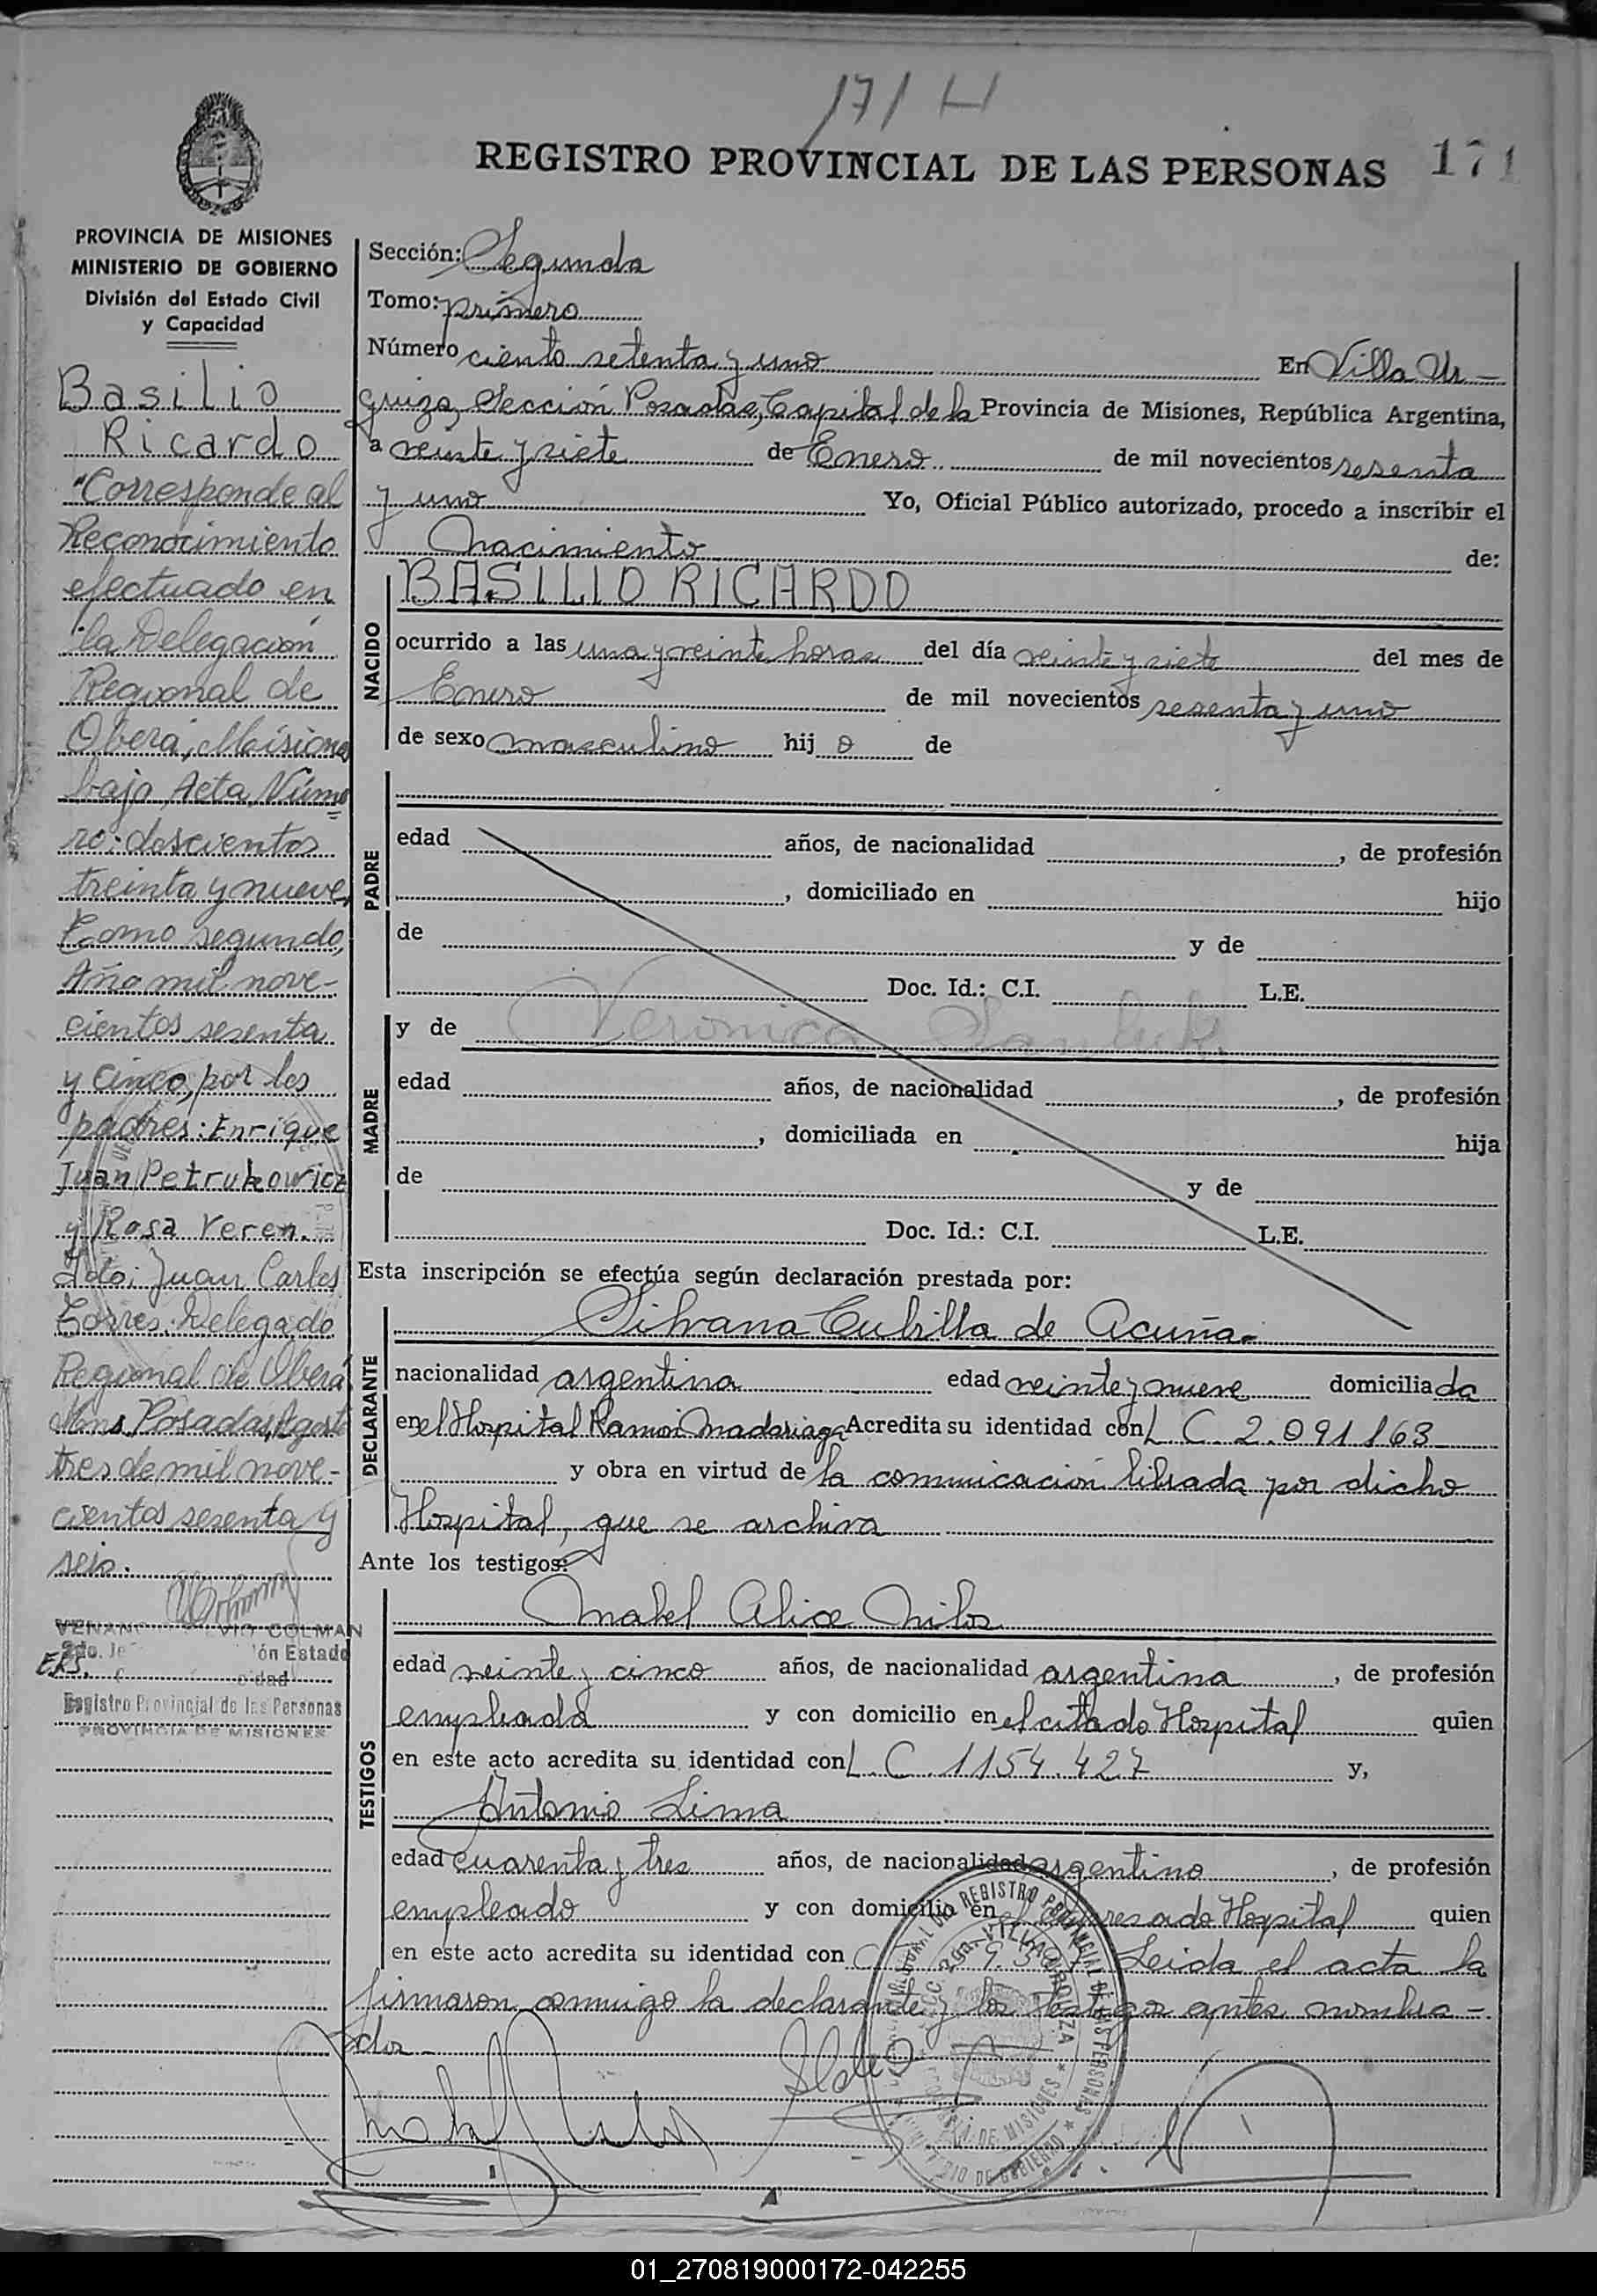 171 H
REGISTRO PROVINCIAL DE LAS PERSONAS 171
PROVINCIA DE MISIONES
MINISTERIO DE GOBIERNO
División del Estado Civil
y Capacidad
Basilio
Ricardo
"Corresponde al
Reconocimiento
efectuado en
la Delegación
Regional de
Oberá, Misiones
bajo Acta Núme
ro: doscientos
treinta y nueve,
Tomo segundo,
Año mil nove-
cientos sesenta
y cinco, por los
padres: Enrique
Juan Petrukowicz
y Rosa Veren.
Fdo: Juan Carlos
Torres. Delegado
Regional de Oberá
Mns. Posadas, Agosto
tres de mil nove-
cientos sesenta y
seis.
COLMAN
ón Estado
ERS.
Registro Provincial de las Personas
PROVINCIA DE MISIONES
Sección: Segunda
Tomo: primero
Número ciento setenta y uno En Villa Ur-
quiza, Sección Posadas, Capital de la Provincia de Misiones, República Argentina,
a veinte y siete de Enero de mil novecientos sesenta
y uno Yo, Oficial Público autorizado, procedo a inscribir el
Nacimiento de:
NACIDO
BASILIO RICARDO
ocurrido a las una y veinte horas del día veinte y siete del mes de
Enero de mil novecientos sesenta y uno
de sexo masculino hijo de
PADRE
edad años, de nacionalidad , de profesión
, domiciliado en hijo
de y de
Doc. Id.: C.I. L.E.
MADRE
y de Veronica
edad años, de nacionalidad , de profesión
, domiciliada en hija
de y de
Doc. Id.: C.I. L.E.
Esta inscripción se efectúa según declaración prestada por:
DECLARANTE
Silvana Cubilla de Acuña-
nacionalidad argentina edad veinte y nueve domiciliada
en el Hospital Ramón Madariaga Acredita su identidad con L. C. 2.091.163
y obra en virtud de la comunicación librada por dicho
Hospital, que se archiva
Ante los testigos:
TESTIGOS
Mabel Alice
edad veinte y cinco años, de nacionalidad argentina , de profesión
empleada y con domicilio en el citado Hospital quien
en este acto acredita su identidad con L. C. 1154.427 y,
Antonio Lima
edad cuarenta y tres años, de nacionalidad argentino , de profesión
empleado y con domicilio en el expresado Hospital quien
en este acto acredita su identidad con Leida el acta la
firmaron conmigo la declarante y los testigos antes nombra-
dos-
01_270819000172-042255